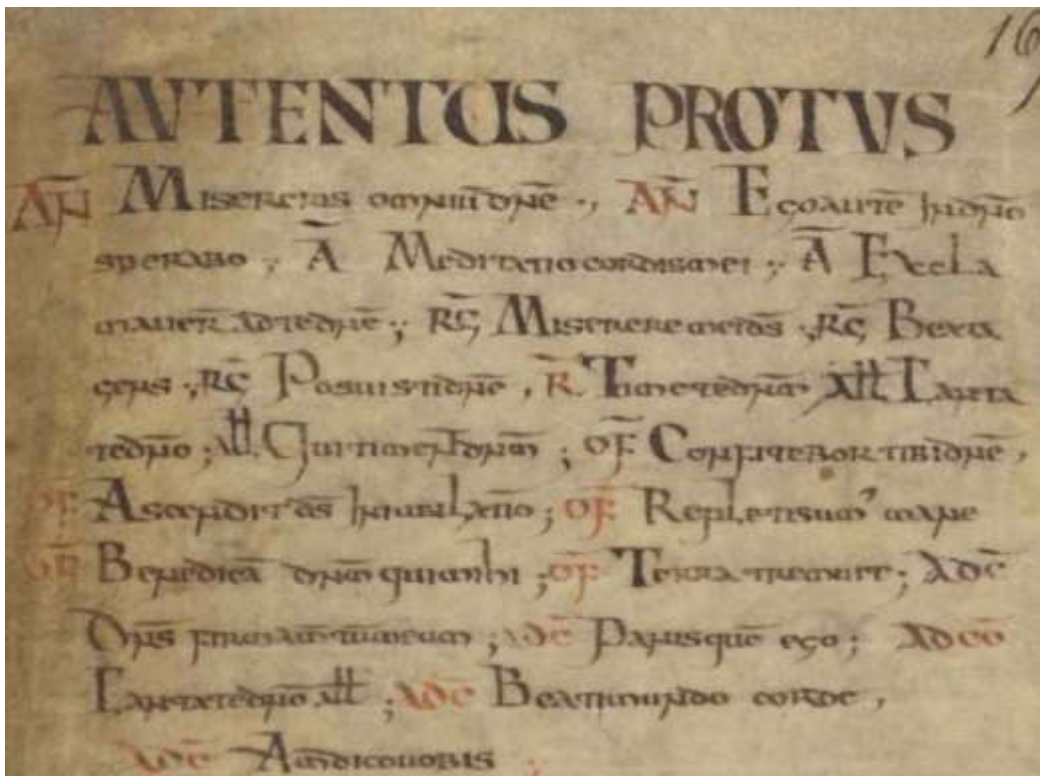 16
AVTENTUS PROTVS
AÑ Misereris omniū dn̄e ., AÑ Ego autē In dn̄o
sperabo ; Ā Meditatio cordis mei ; Ā Excla
maueR̄ ad te dn̄e ; R̄G Miserere mei d̄s ; R̄G
R̄G Posuisti dn̄e , R̄ Timete dn̄m All
; All Qui timeN̄T dn̄m ; OF̄ Confitebor tibi dn̄e ,
OF̄ Ascendit d̄s In iubilatio ; OF̄ Repleti sum' mane
OF̄ Benedicā dn̄m qui m̄hi ; OF̄ Terra tremuit ; AD C̄
Dn̄s firmamtūm meum ; AD C̄ Panis quē ego ; AD CŌ
Cantate dn̄o all ; AD C̄ Beati mundo corde ,
AD C̄ Amdico uobis ;